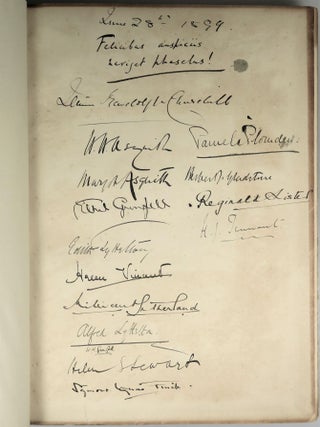 June 28th 1899
Felicibus auspiciis
naviget phaselus!
Randolph Churchill
H H Asquith
Pamela Plowden.
Margot Asquith
Herbert J. Gladstone
Ethel Grenfell
Reginald Lister
H. J. Tennant
Edith Lyttelton
Helen Vincent
Millicent Sutherland
Alfred Lyttelton
Helen Stewart